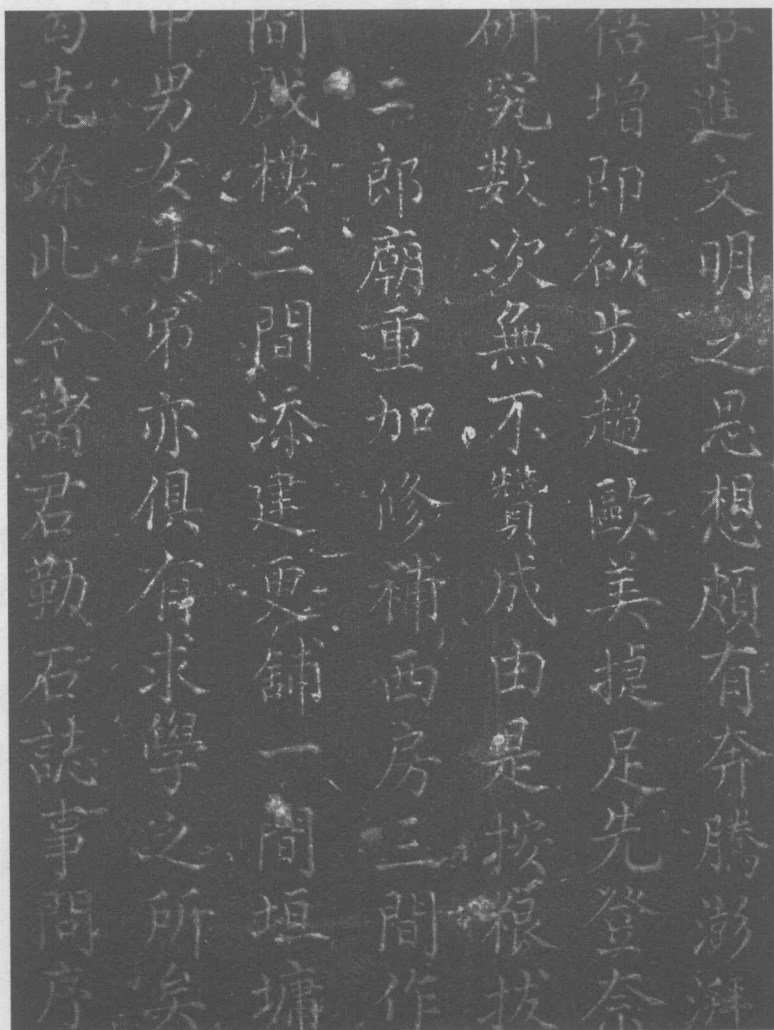 爭進文明之思想頗有奔騰澎湃
倍增即欲步趨歐美捷足先登令
研究數次無不贊成由是按粮拔
二郎廟重加修補西房三間作
間戲樓三間添建更舖一間垣墉
中男女子弟亦俱有求學之所矣
克臻此今諸君勒石誌事問序